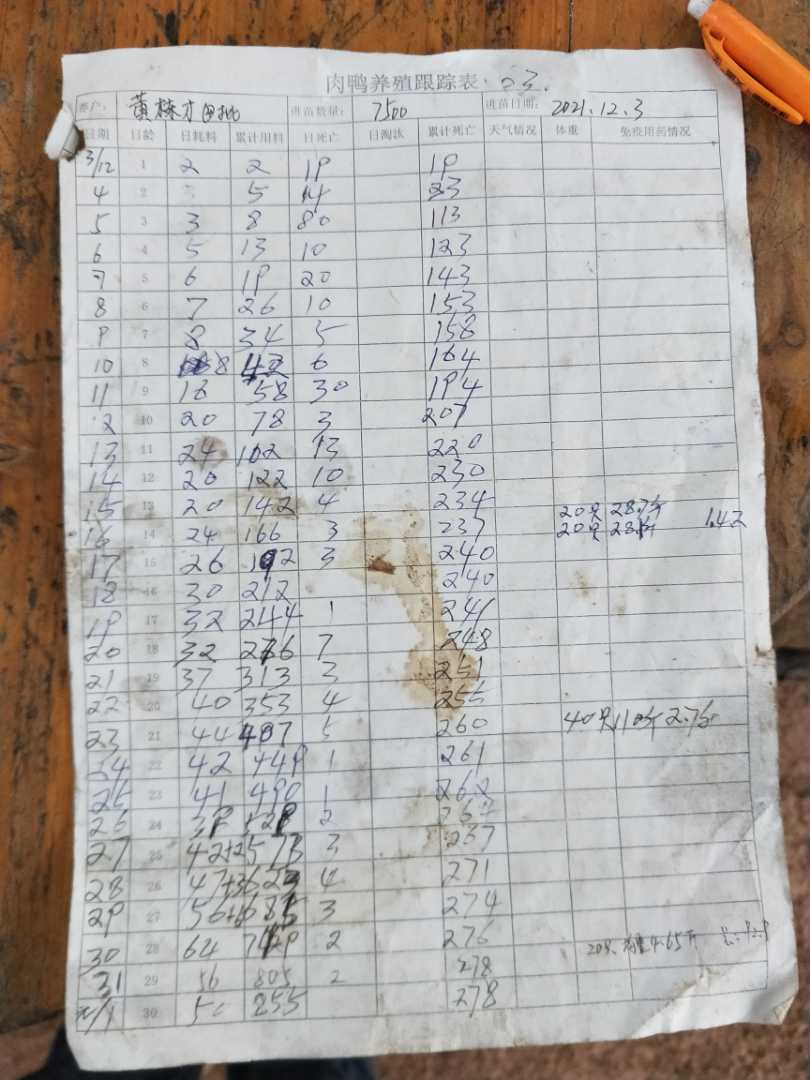 肉鸭养殖跟踪表 03.
养户: 黄栋才 四批 进苗数量: 7500 进苗日期: 2021.12.3
日期 日龄 日耗料 累计用料 日死亡 日淘汰 累计死亡 天气情况 体重 免疫用药情况
3/12 1 2 2 19 19
4 2 5 14 23
5 3 3 8 80 113
6 4 5 13 10 123
7 5 6 19 20 143
8 6 7 26 10 153
9 7 8 34 5 158
10 8 8 42 6 164
11 9 16 58 30 194
12 10 20 78 3 207
13 11 24 102 13 220
14 12 20 122 10 230
15 13 20 142 4 234 20只 28.7斤
16 14 24 166 3 237 20只 1.42
17 15 26 192 3 240
18 16 30 212 240
19 17 32 244 1 241
20 18 32 276 7 248
21 19 37 313 3 251
22 20 40 353 4 255
23 21 44 407 5 260 40只 110斤 2.75
24 22 42 449 1 261
25 23 41 490 1 262
26 24 39 529 2
27 25 42+2 573 3 267
28 26 47+3 623 4 271
29 27 56+6 685 3 274
30 28 64 749 2 276 4.65斤
31 29 56 805 2 278
30 50 855 278